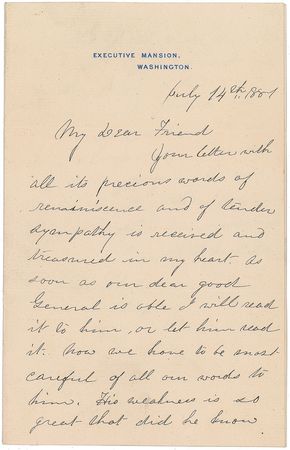 EXECUTIVE MANSION,
WASHINGTON.
July 14th, 1881
My Dear Friend
Your letter with
all its precious words of
reminiscence and of tender
sympathy is received and
treasured in my heart. As
soon as our dear good
General is able I will read
it to him, or let him read
it. Now we have to be most
careful of all our words to
him. His weakness is so
great that did he know